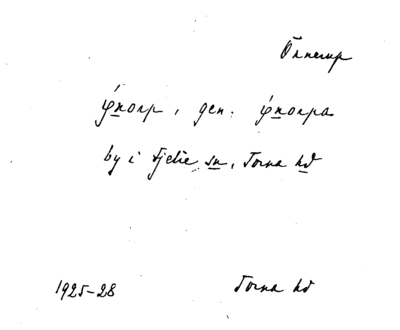 Önnerup
φ́n̲orp, gen. φ́n̲orpa
by i Fjelie sn, Torna hd
1925-28 Torna hd